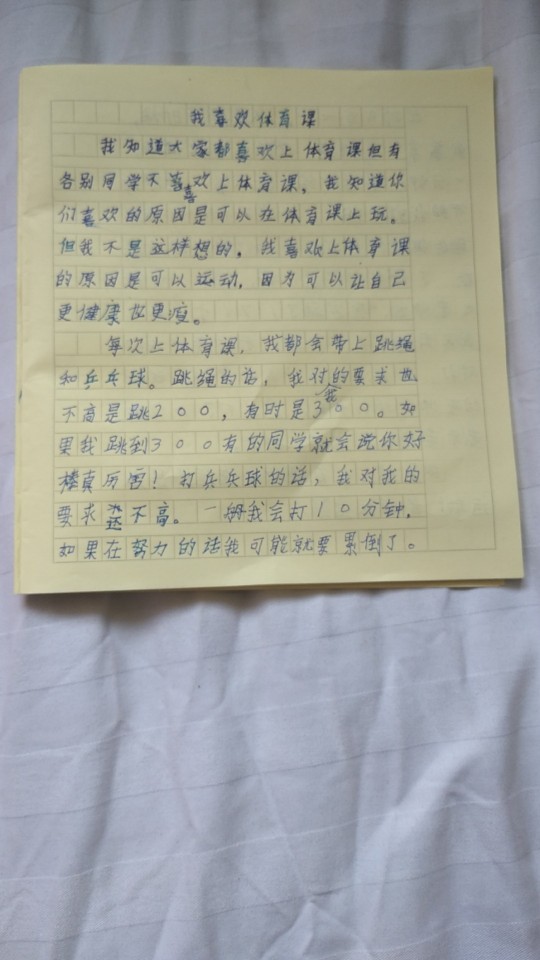 我喜欢体育课
我知道大家都喜欢上体育课但有
各别同学不喜欢上体育课，我知道你
们喜欢的原因是可以在体育课上玩。
但我不是这样想的，我喜欢上体育课
的原因是可以运动，因为可以让自己
更健康也更瘦。
每次上体育课，我都会带上跳绳
和乒乓球。跳绳的话，我对我的要求也
不高是跳200，有时是300。如
果我跳到300有的同学就会说你好
棒真厉害！打乒乓球的话，我对我的
要求不高。一般我会打10分钟，
如果在努力的话我可能就要累倒了。